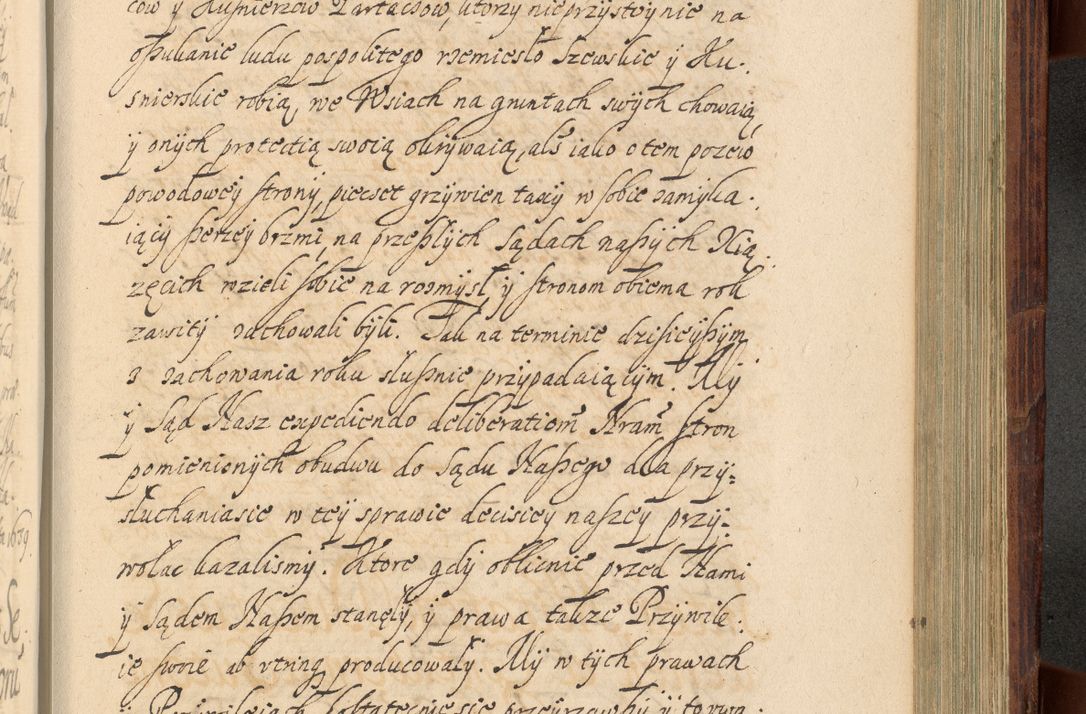 cow ÿ Kusnierzow Partaczow, ktorzy nieprzÿstoynie na
oszukanie ludu pospolitego rzemiesło Szewskie ÿ Ku.
snierskie robią, we Wsiach na gruntach swÿch chowaią,
ÿ onÿch protectią swoią okrÿwaią, als iako o tem pozew
powodoweÿ stronÿ, piecset grzÿwien taxÿ w sobie zamÿka.
iącÿ szerzeÿ brzmi, na przeszlÿch Sądach naszÿch Xią.
zęcich wzieli sobie na rozmÿsl, ÿ stronom obiema rok
zawitÿ zachowali bÿli. Tak na terminie dzisieÿszÿm
z zachowania roku słusznie przÿpadaiącÿm. Mÿ
ÿ Sąd Nasz expediendo deliberatiom̄ N̄ram̄ stron
pomienionÿch obudwu do Sądu Naszego dla przÿ=
słuchaniasie w teÿ sprawie decisieÿ naszeÿ przÿ.
wołac kazalismÿ. Ktore gdÿ oblicnie przed Nami
ÿ Sądem Naszem stanęlÿ, ÿ prawa takze Przÿwile.
ie swoie ab vtrinq producowalÿ. Mÿ w tÿch prawach
ÿ Przÿwileiach dostatecnie sie przeÿrzawszÿ ÿ